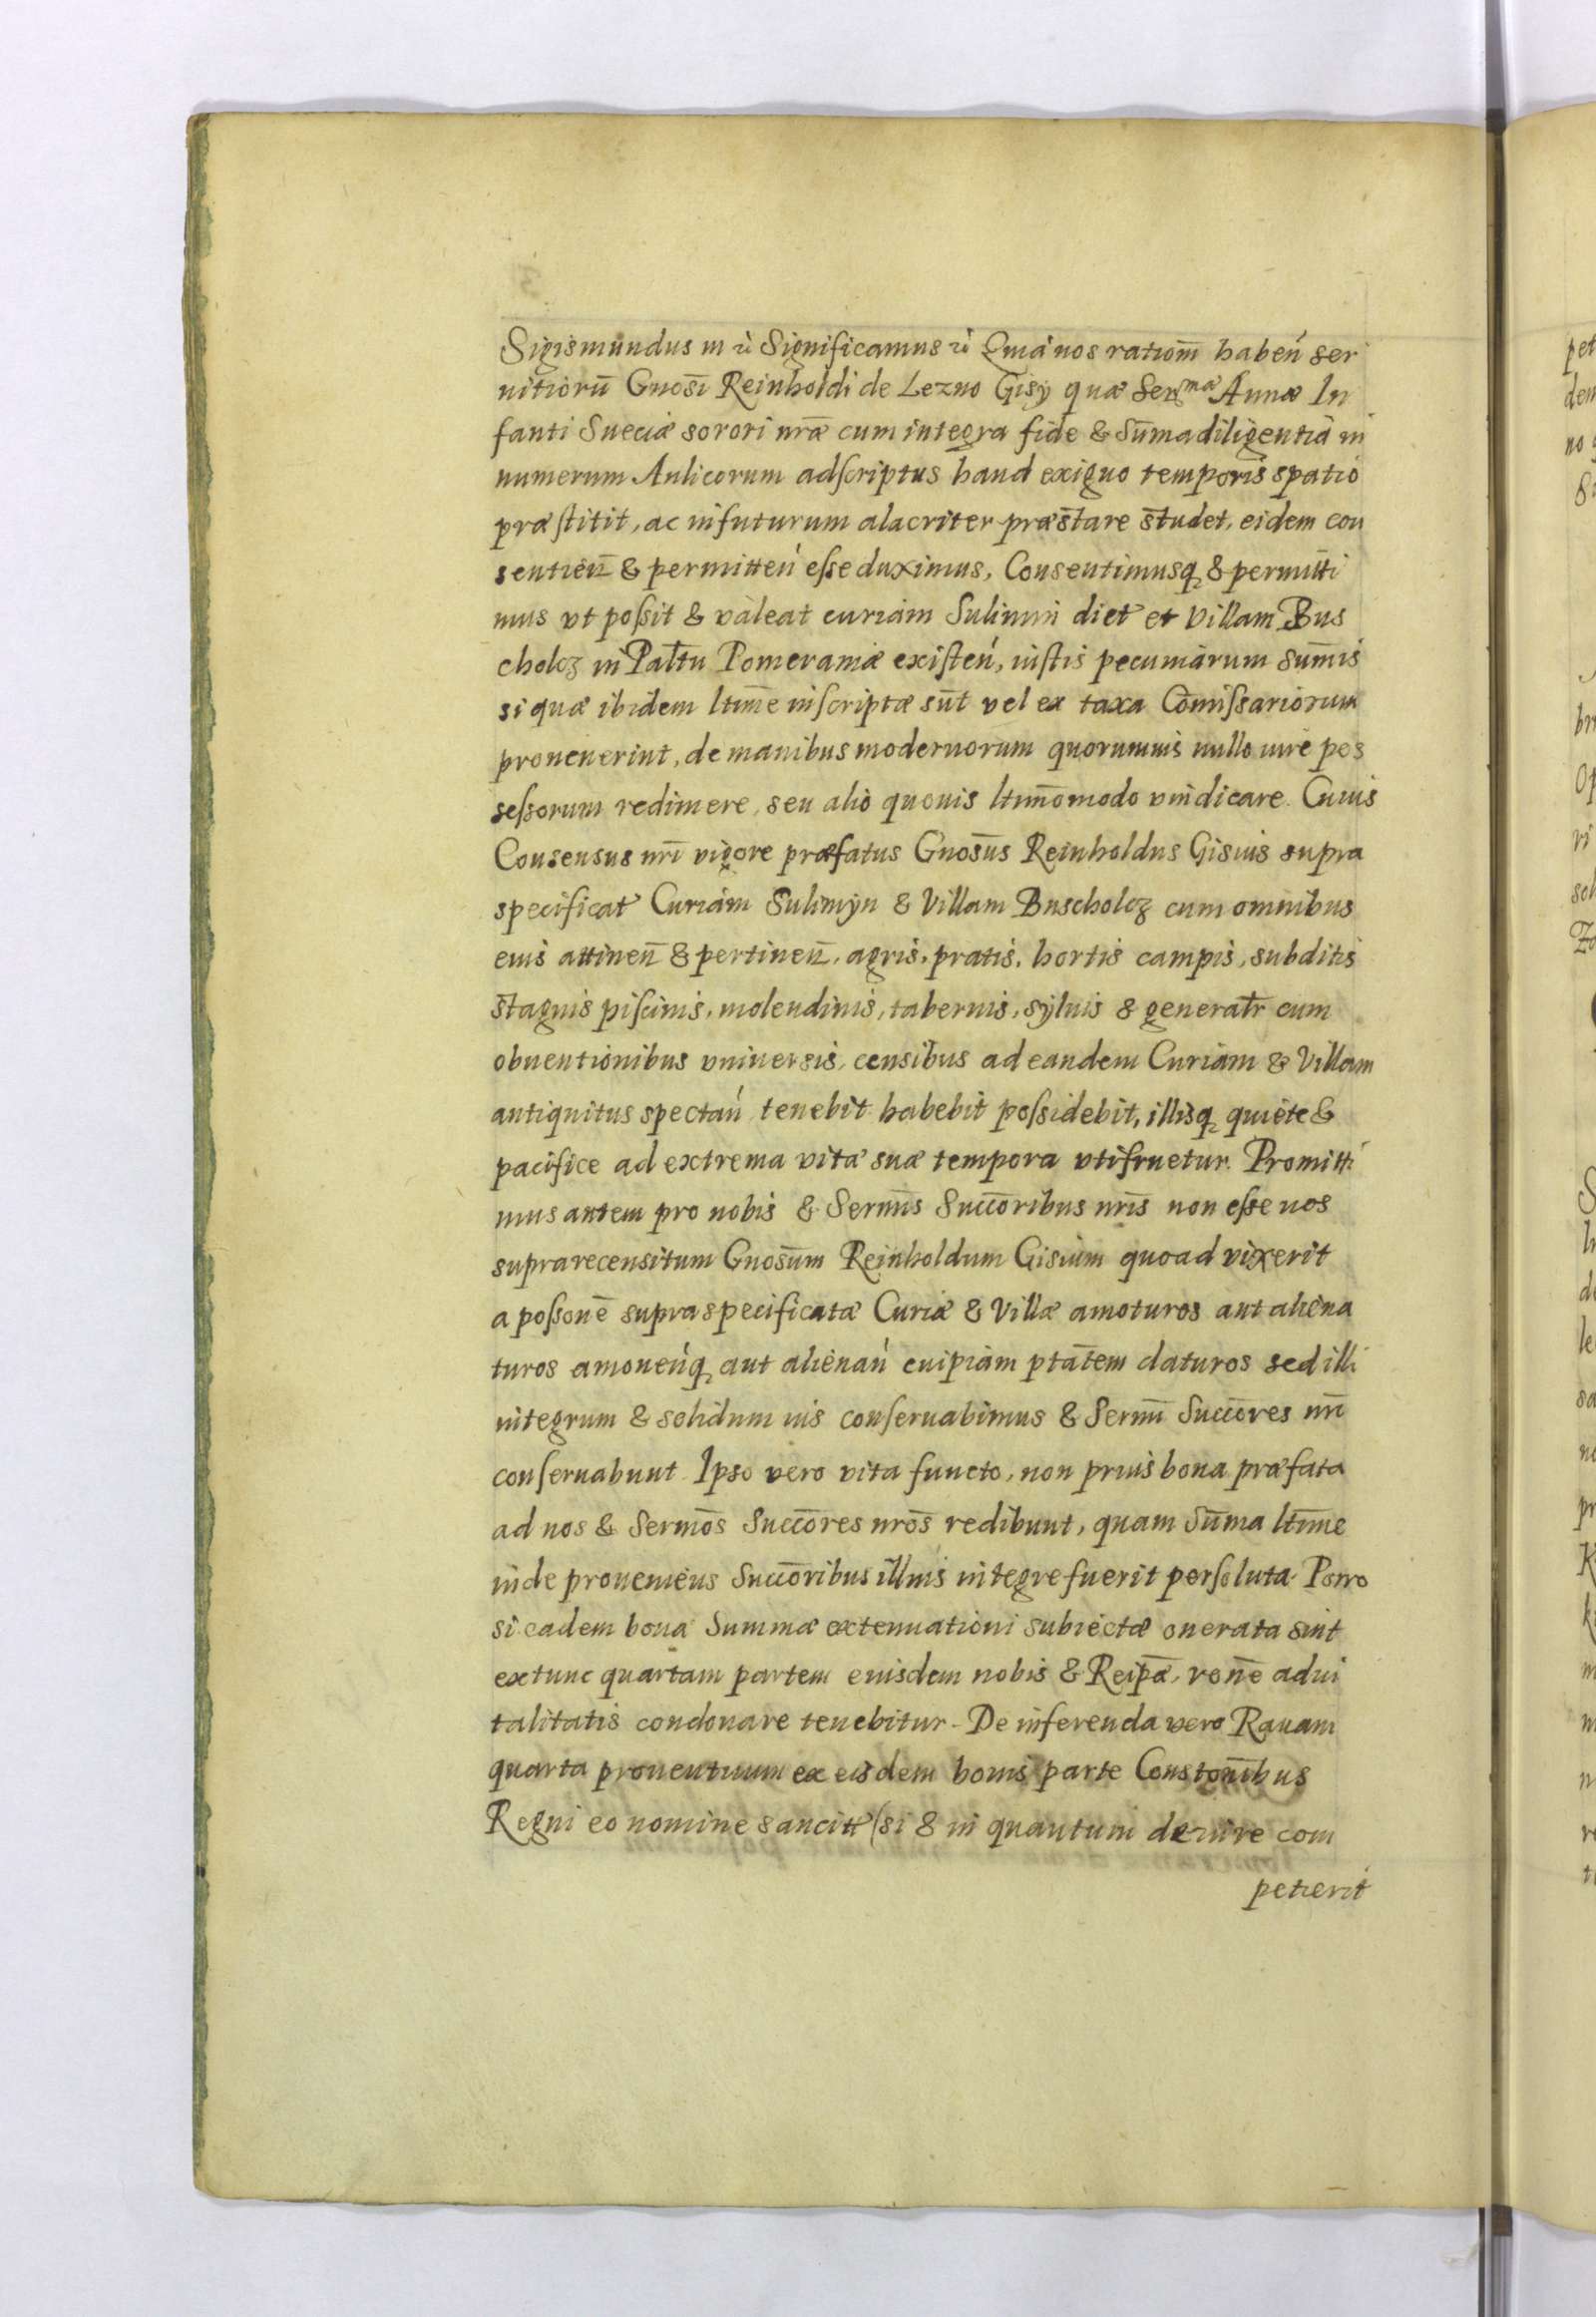 Sigismundus III &c Significamus &c Quia nos rationm̄ haben̄ ser
uitiorū Gnosi̅ Reinholdi de Lezno Gisy quæ Serᵐᵃᵉ Annæ In
fanti Sueciæ sorori nr̄æ cum integra fide & sum̄a diligentia in
numerum Aulicorum adscriptus haud exiguo temporis spatio
præstitit, ac in futurum alacriter præstare studet, eidem con
sentien̄ & permitten̄ esse duximus, Consentimusq₃ & permitti
mus vt possit & valeat curiam Sulimin dict et Villam Bus
cholcz in Palt̄u Pomeraniæ existen̄, iustis pecuniarum sum̄is
si quæ ibidem ltim̄e inscriptæ sūt vel ex taxa Com̄issariorum
prouenerint, de manibus modernorum quorumuis nullo iure pos
sessorum redimere, seu alio quouis ltim̄o modo vindicare. Cuius
Consensus nr̄i vigore præfatus Gnosu̅s Reinholdus Gisius supra
specificat Curiam Sulimÿn & Villam Buscholcz cum omnibus
eius attinen̄ & pertinen̄, agris, pratis, hortis campis, subditis
stagnis piscinis, molendinis, tabernis, syluis & generalr̄ cum
obuentionibus vniuersis, censibus ad eandem Curiam & Villam
antiquitus spectan̄ tenebit habebit possidebit, illisq₃ quiete &
pacifice ad extrema vitæ suæ tempora vtifruetur. Promitti
mus autem pro nobis & Sermi̅s Succo̅ribus nr̄is non esse nos
suprarecensitum Gnosu̅m Reinholdum Gisium quoad vixerit
a posso̅ne supraspecificatæ Curiæ & Villæ amoturos aut aliena
turos amouen̄q₃ aut alienan̄ cuipiam pta̅tem daturos sed illi
integrum & solidum ius conseruabimus & Sermi̅ Succo̅res nr̄i
conseruabunt. Ipso vero vita functo, non prius bona præfata
ad nos & Sermo̅s Succo̅res nr̄os redibunt, quam Sum̄a ltim̄e
inde proueniens Succo̅ribus illius integre fuerit persoluta. Porro
si eadem bona Summæ extenuationi subiectæ onerata sint
extunc quartam partem eiusdem nobis & Reipæ̅, rone̅ adui
talitatis condonare tenebitur. De inferenda vero Rauam
quarta prouentuum ex eisdem bonis parte Constoni̅bus
Regni eo nomine sancitt (si & in quantum de iure com
petierit